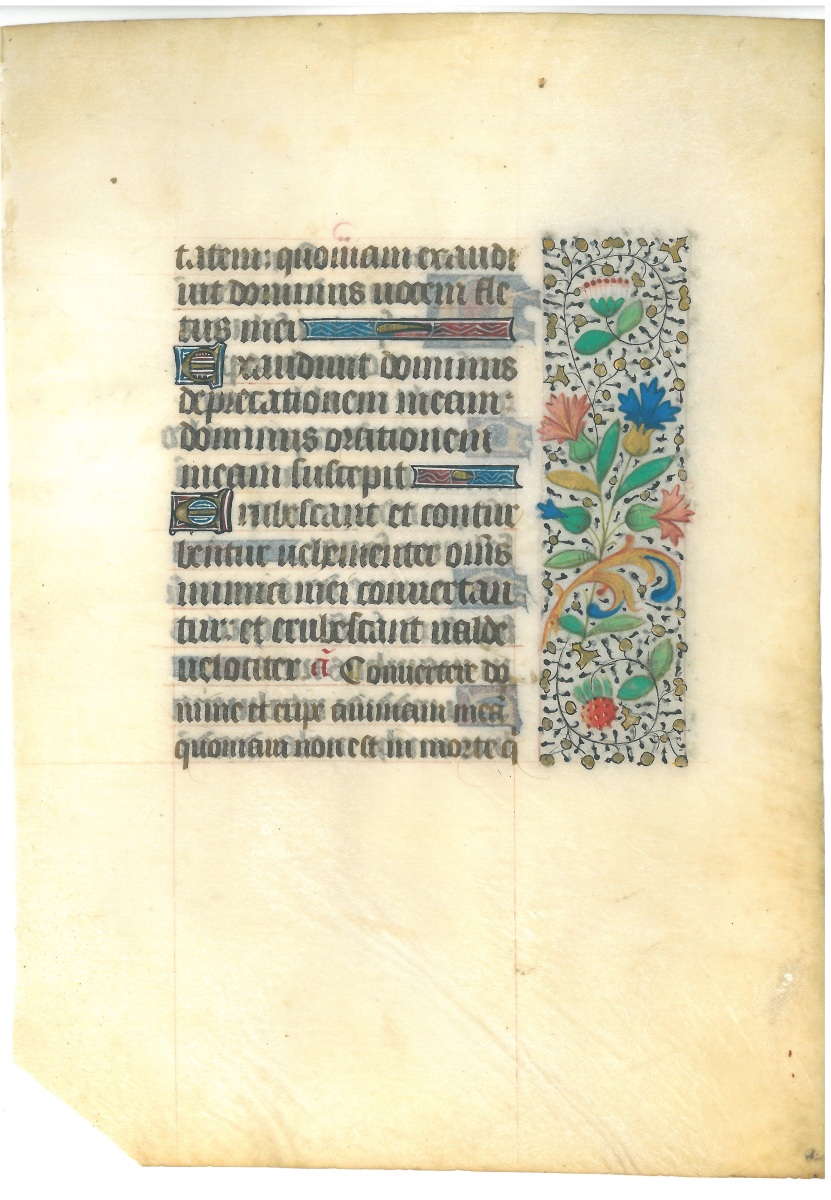 tatem: quoniam exaudi
uit dominus uocem fle
tus mei
Exaudiuit dominus
deprecationem meam:
dominus orationem
meam suscepit
Erubescant et contur
bentur uehementer om̄s
inimici mei conuertan
tur: et erubescant ualde
uelociter ā Conuertere do
mine et eripe animam meā
quoniam non est in morte q